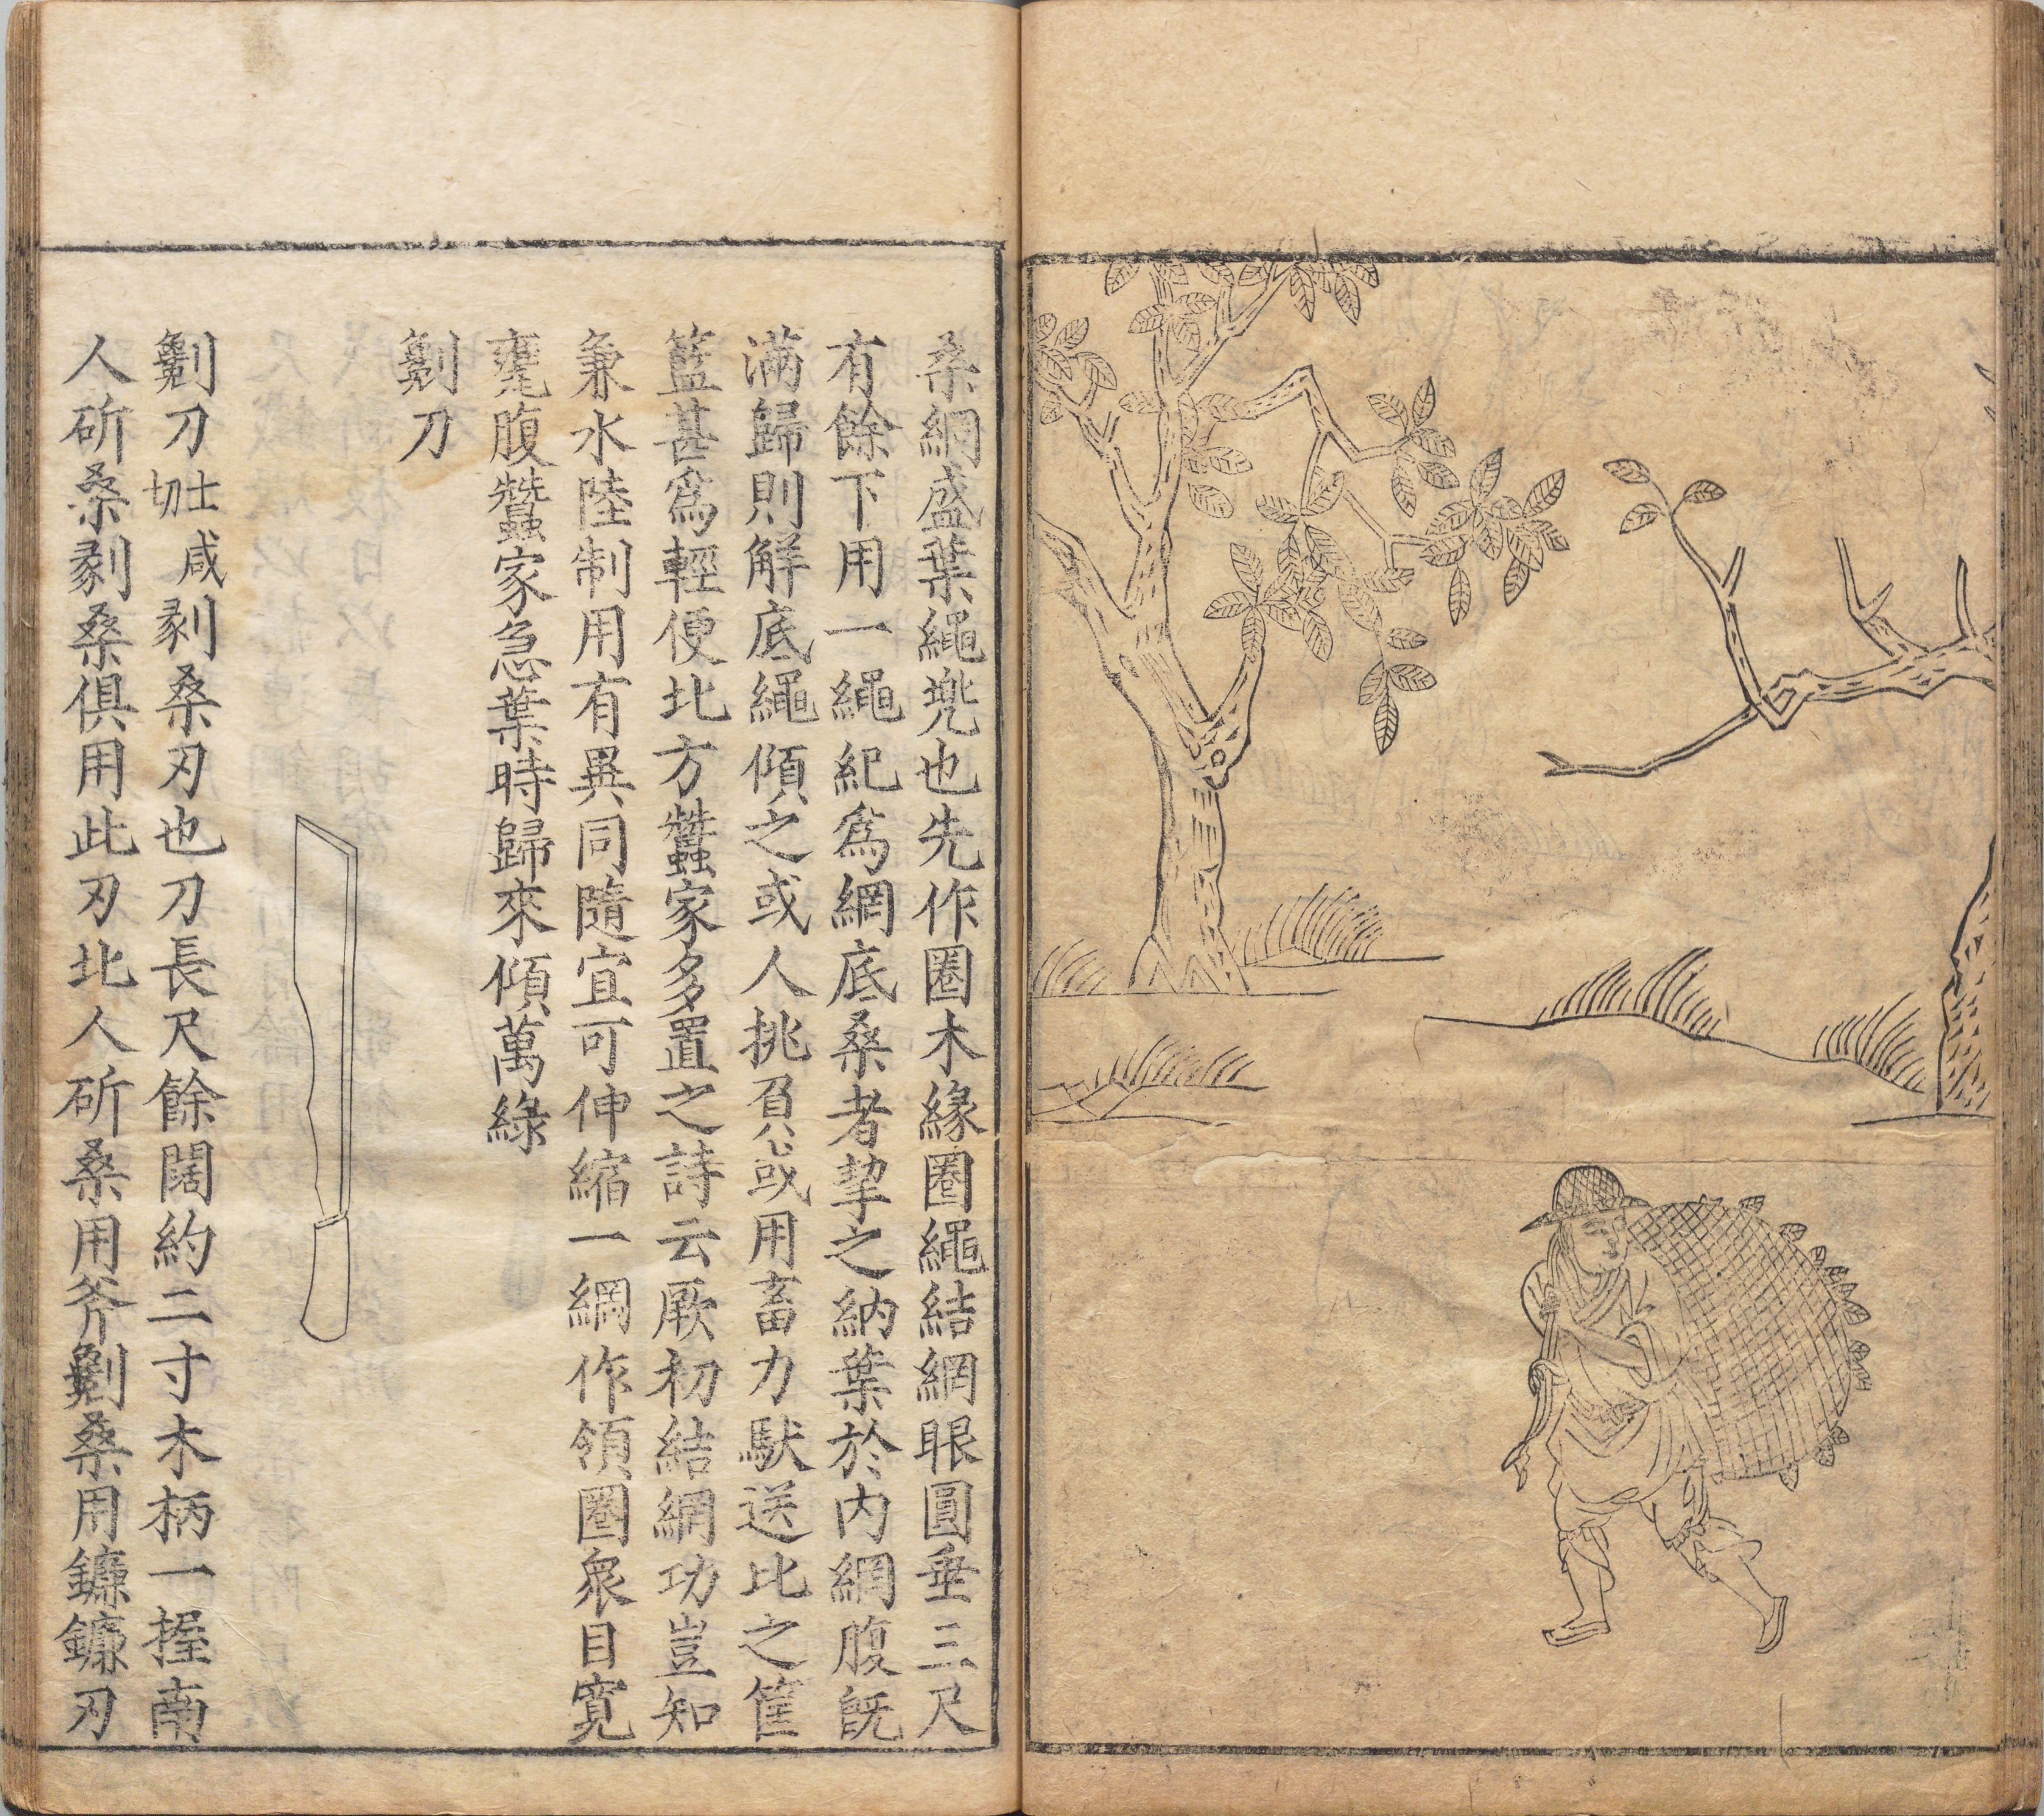 桑網盛葉繩兠也先作圈木緣圈繩結網眼圓垂三尺
有餘下用一繩紀爲網底桑者挈之納葉於内網腹旣
滿歸則解底繩傾之或人挑負或用畜力馱送比之筐
籃甚爲輕便北方蠶家多置之詩云厥初結網功豈知
兼水陸制用有異同隨宜可伸縮一網作領圈衆目寛
𮮐腹蠶家急葉時歸來傾萬綠
劖刀
劖刀士咸切剥桑刃也刀長尺餘闊約二寸木柄一握南
人斫桑剥桑俱用此刃北人斫桑用斧劖桑用鐮鐮刃